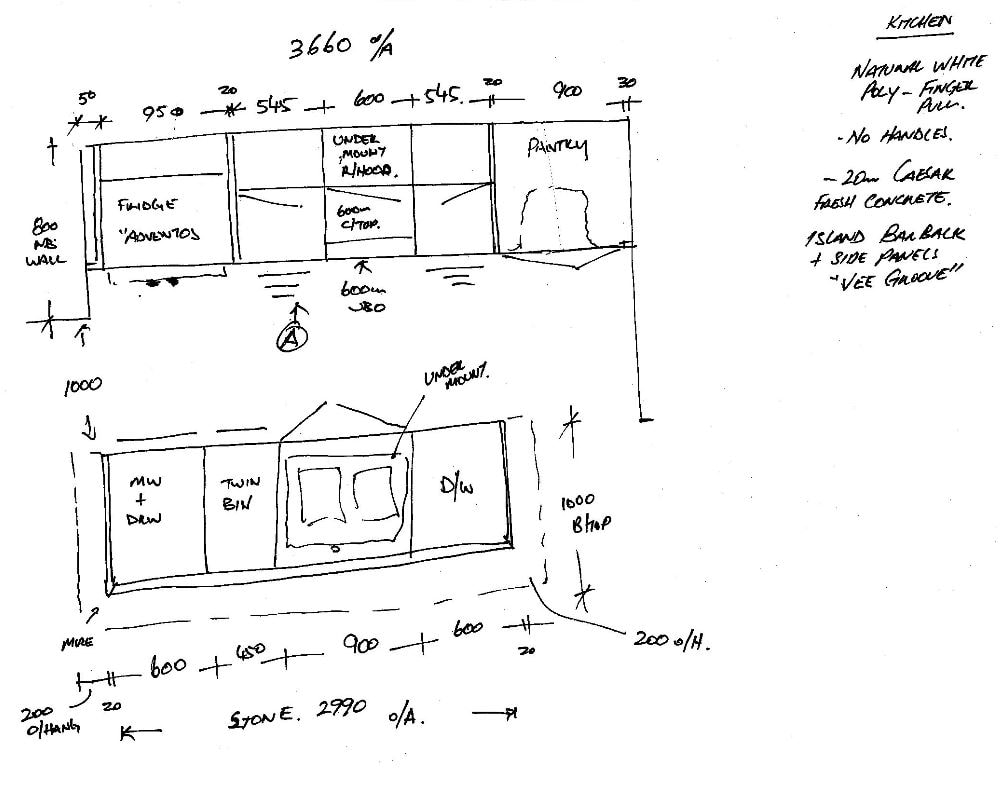 KITCHEN
NATURAL WHITE
POLY - FINGER
PULL.
- NO HANDLES.
- 20m CAESAR
FRESH CONCRETE.
ISLAND BARBACK
+ SIDE PANELS
"VEE GROOVE"
3660 O/A
50
950
20
545
600
545.
20
900
30
UNDER
MOUNT
R/HOOD.
PANTRY
FRIDGE
"AVENTOS
600m
C/TOP.
800
NIB
WALL
600m
UBO
A
1000
UNDER
MOUNT.
MW
+
DRW
TWIN
BIN
D/W
1000
B/TOP
MITRE
200 O/H.
600
450
900
600
20
200
O/HANG
20
STONE. 2990 O/A.